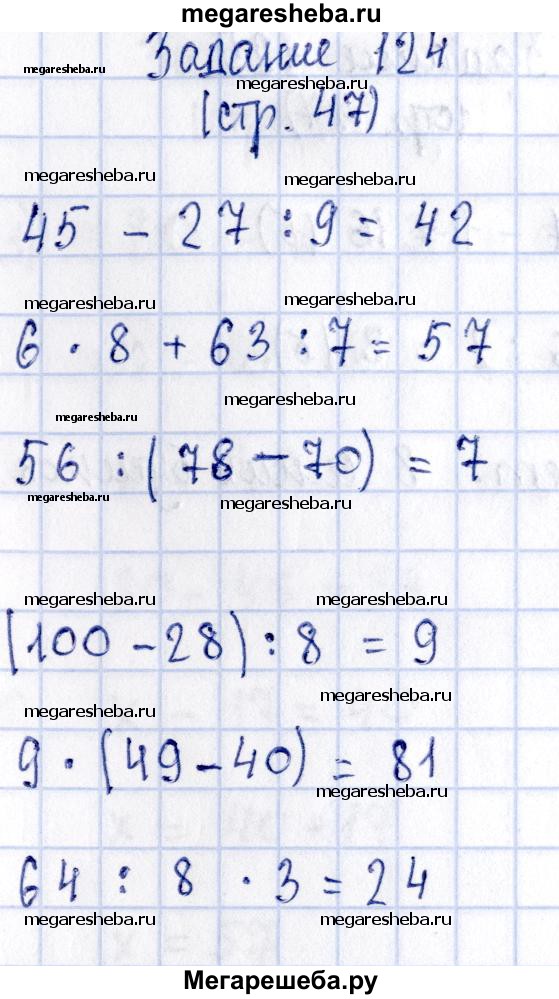 megaresheba.ru
Задание 124
megaresheba.ru megaresheba.ru
(стр. 47)
megaresheba.ru megaresheba.ru
45 - 27 : 9 = 42
megaresheba.ru megaresheba.ru
6 · 8 + 63 : 7 = 57
megaresheba.ru
megaresheba.ru
56 : (78 - 70) = 7
megaresheba.ru megaresheba.ru
megaresheba.ru megaresheba.ru
(100 - 28) : 8 = 9
megaresheba.ru megaresheba.ru
9 · (49 - 40) = 81
megaresheba.ru
64 : 8 · 3 = 24
megaresheba.ru megaresheba.ru
Мегарешеба.ру